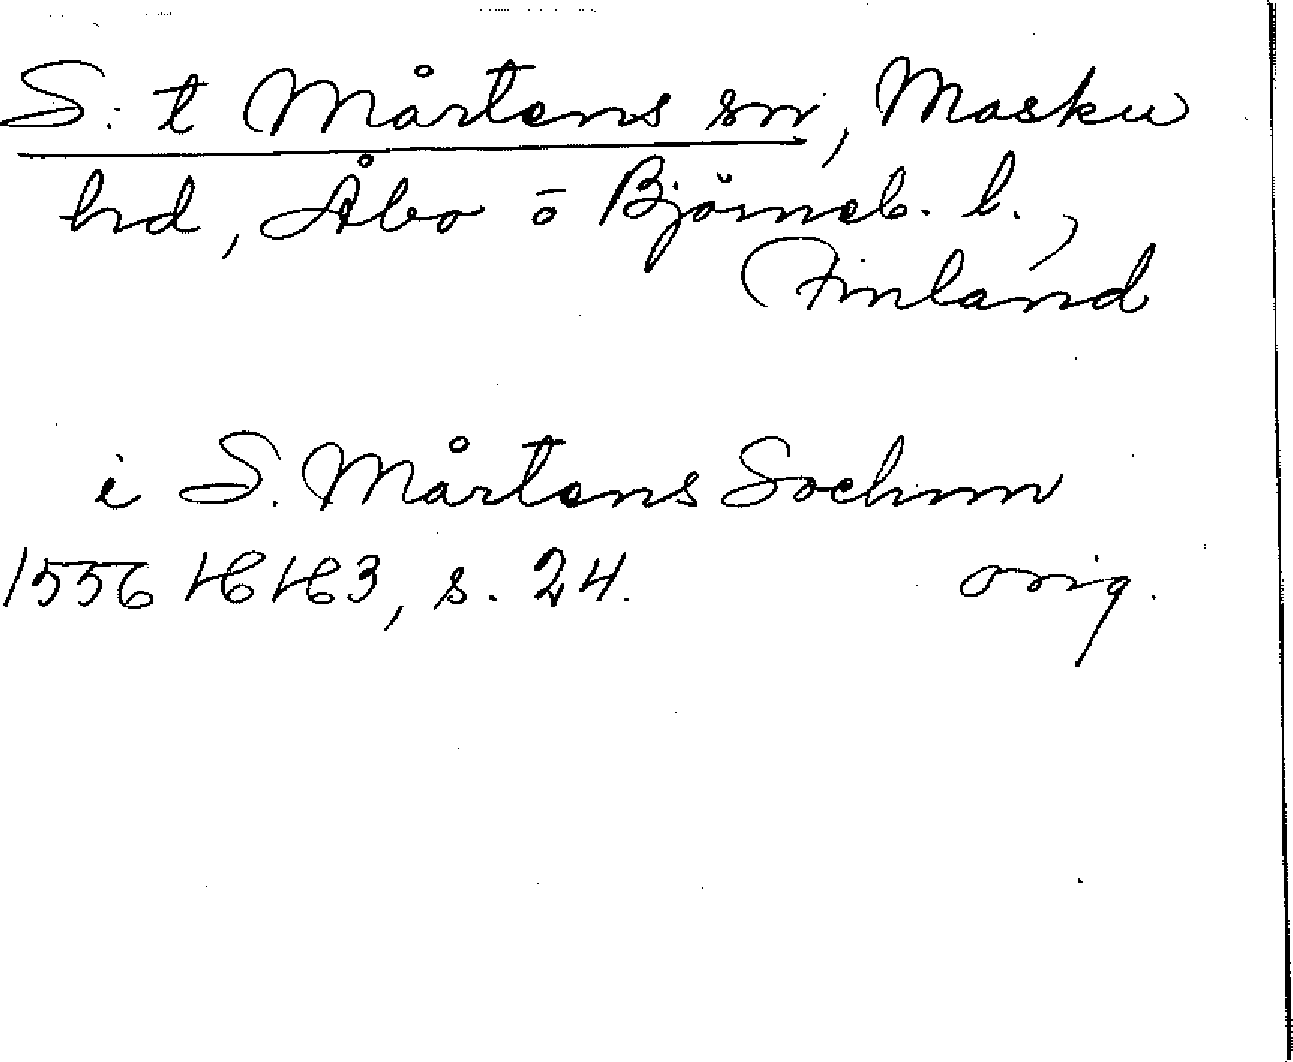 S:t Mårtens sn, Masku
hd, Åbo o Björneb. l.,
Finland
i S. Mårtens Sochnn
1556 HH 3, s. 24. orig.